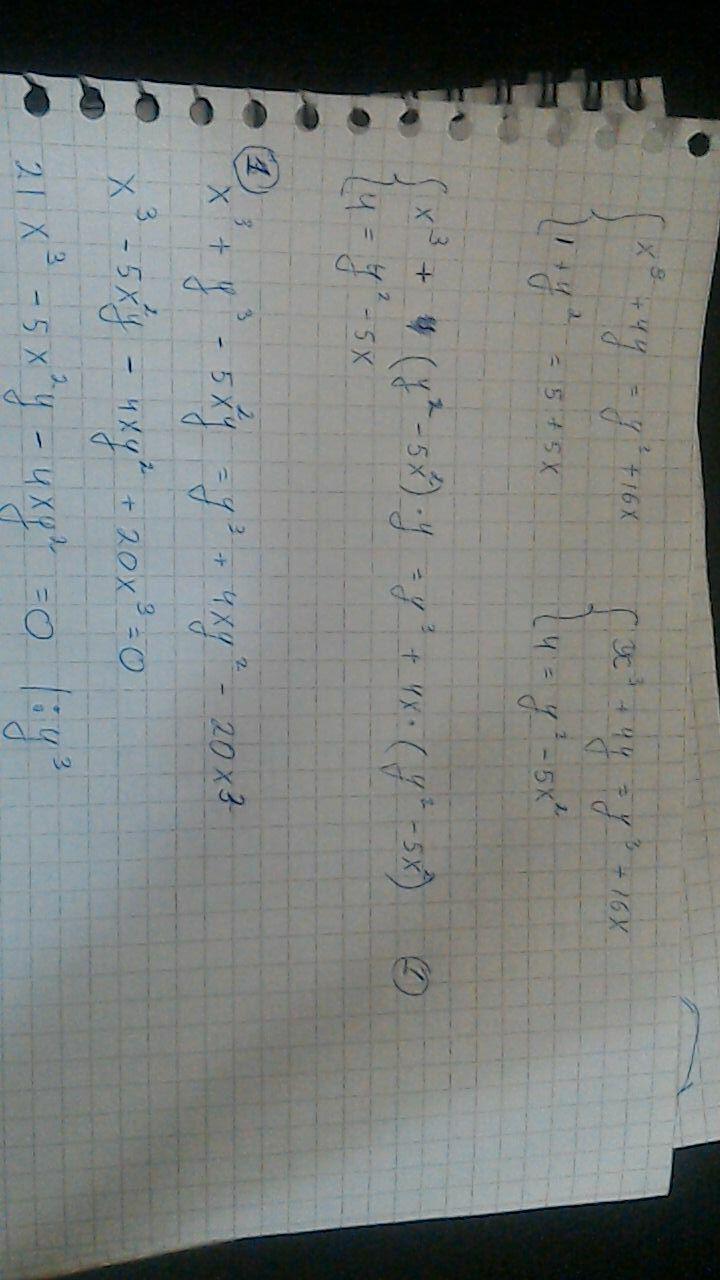 { x³ + 4y = y³ + 16x { x³ + 4y = y³ + 16x
{ 1 + y² = 5 + 5x { 4 = y² - 5x²
{ x³ + (y² - 5x²)·y = y³ + 4x·(y² - 5x²) ①
{ 4 = y² - 5x
① x³ + y³ - 5x²y = y³ + 4xy² - 20x³
x³ - 5x²y - 4xy² + 20x³ = 0
21x³ - 5x²y - 4xy² = 0 |: y³